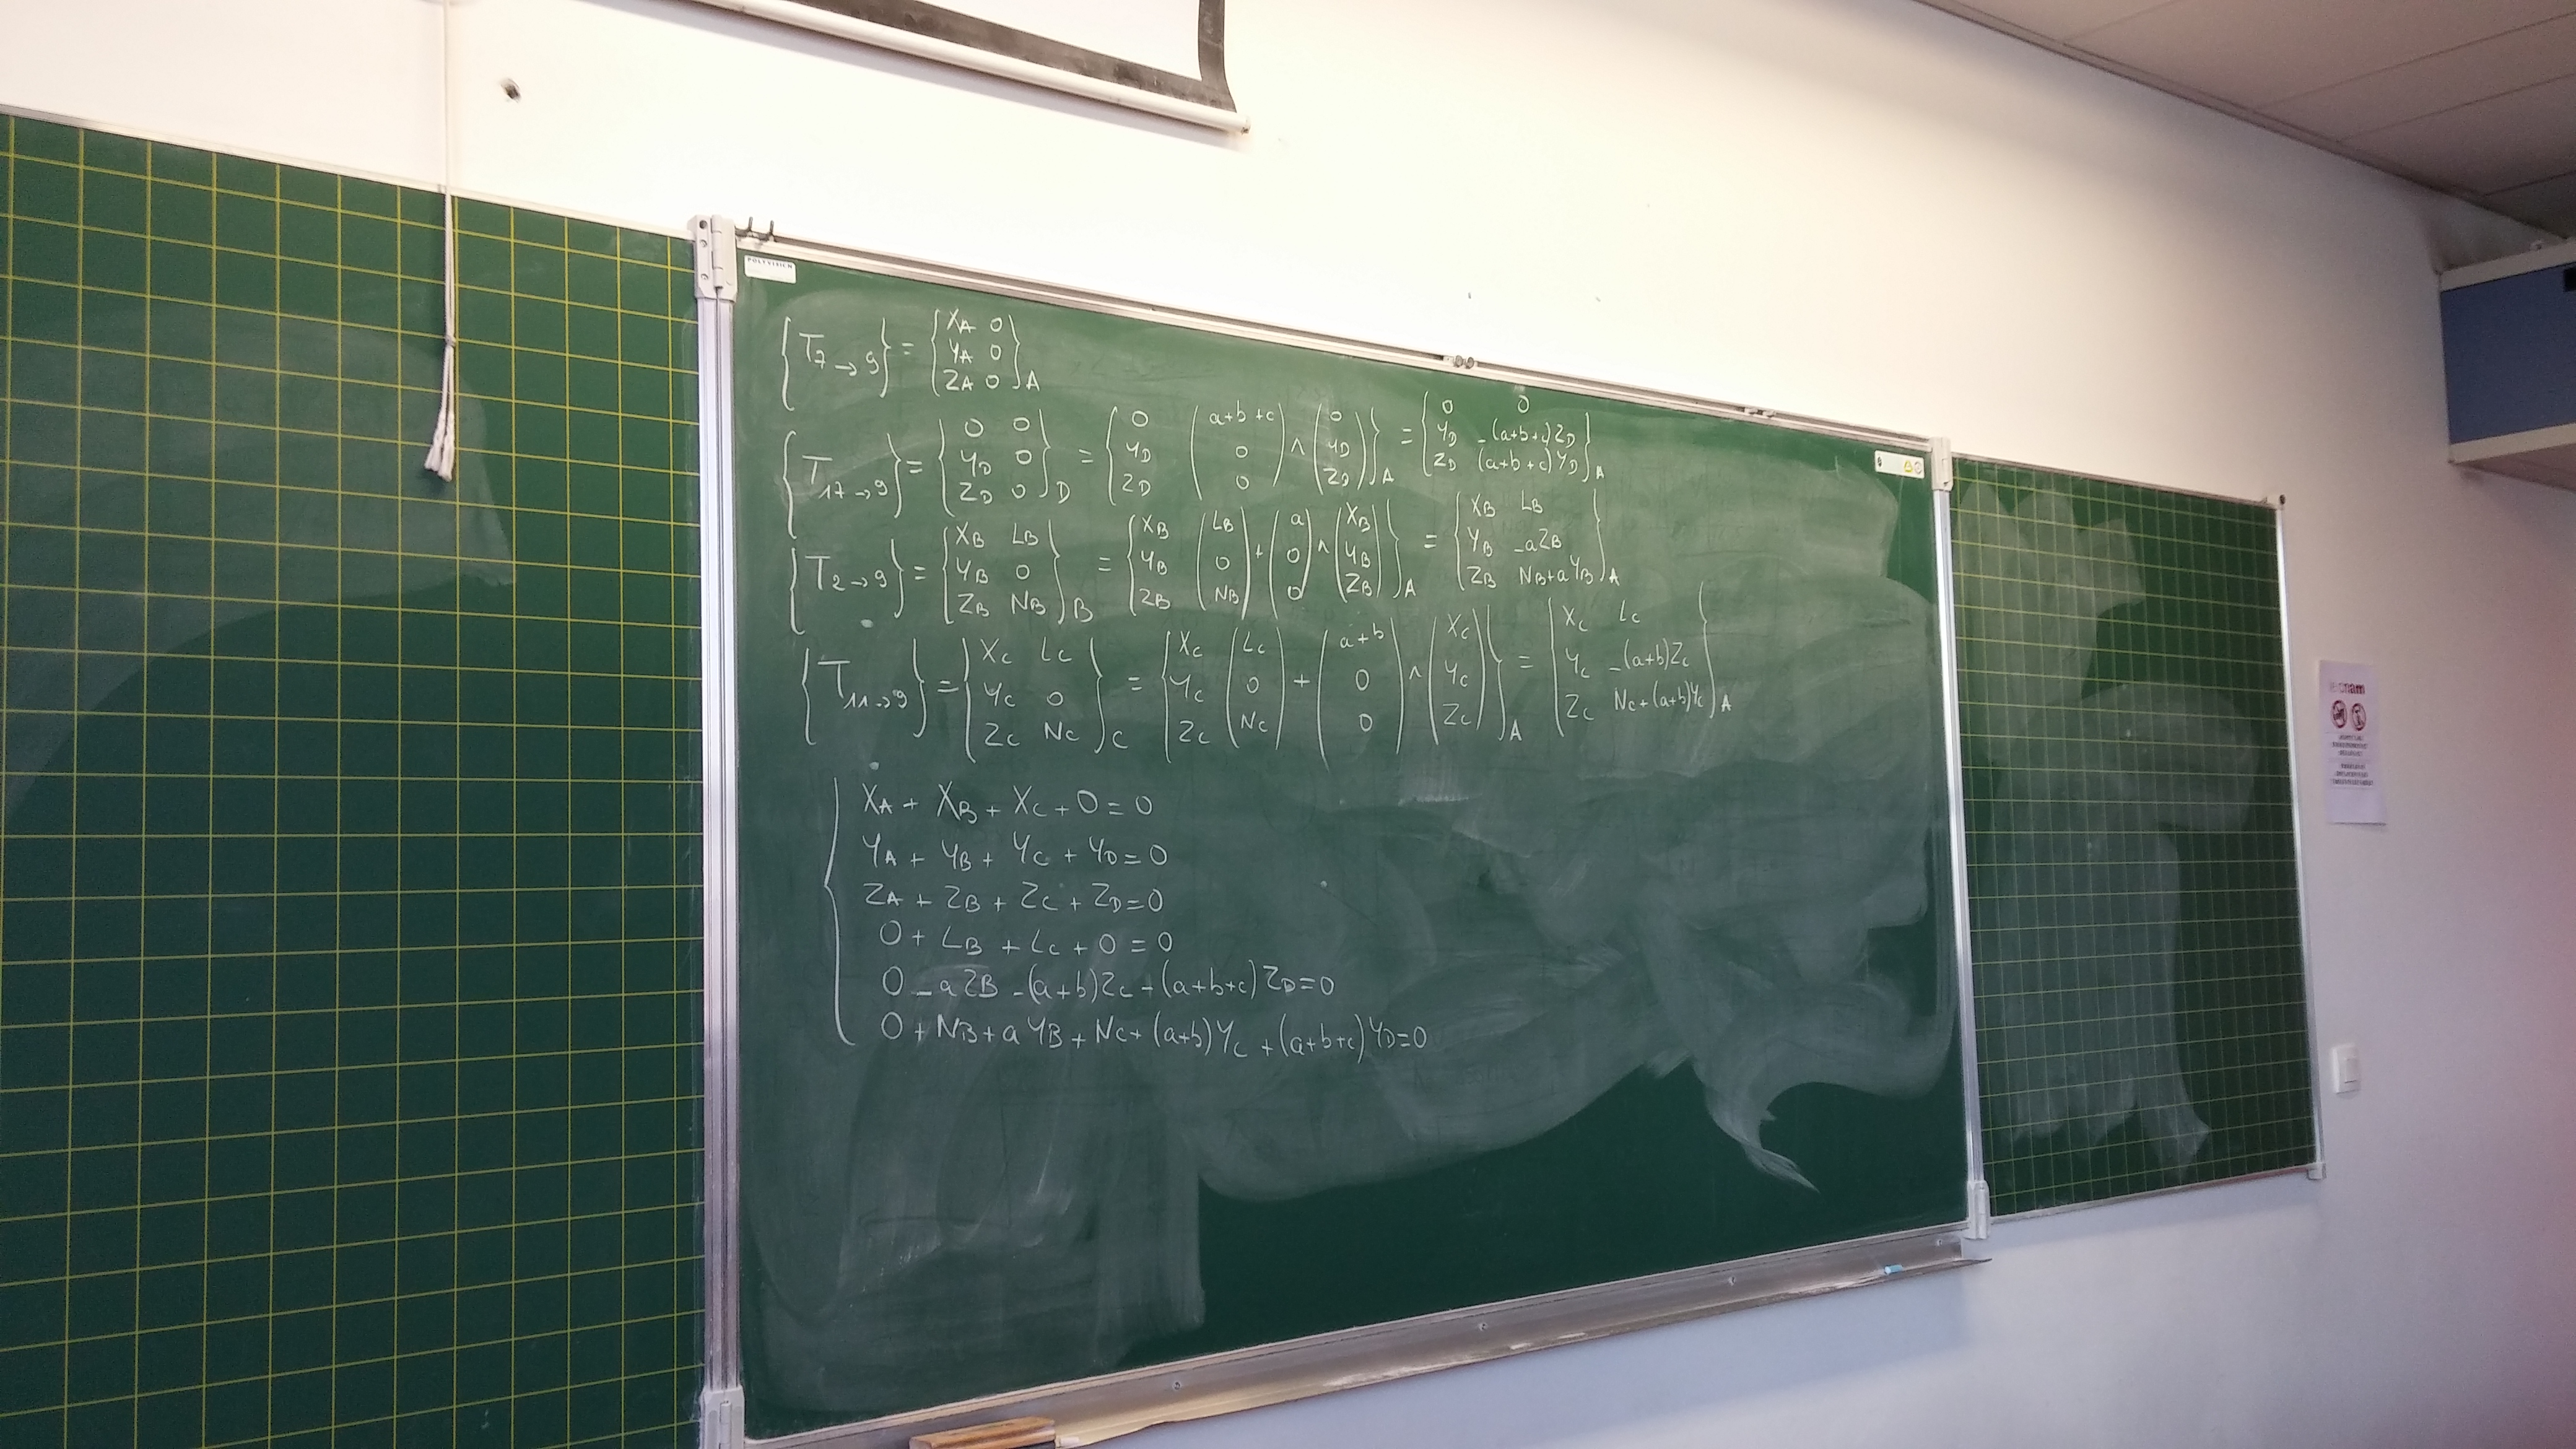 POLYVISION
{T7→9} = {XA 0 / YA 0 / ZA 0}A
{T17→9} = {0 0 / YD 0 / ZD 0}D = {0 / YD / ZD (a+b+c / 0 / 0) ∧ (0 / YD / ZD)}A = {0 0 / YD -(a+b+c)ZD / ZD (a+b+c)YD}A
{T2→9} = {XB LB / YB 0 / ZB NB}B = {XB / YB / ZB (LB / 0 / NB) + (a / 0 / 0) ∧ (XB / YB / ZB)}A = {XB LB / YB -aZB / ZB NB+aYB}A
{T11→9} = {XC LC / YC 0 / ZC NC}C = {XC / YC / ZC (LC / 0 / NC) + (a+b / 0 / 0) ∧ (XC / YC / ZC)}A = {XC LC / YC -(a+b)ZC / ZC NC+(a+b)YC}A
XA + XB + XC + 0 = 0
YA + YB + YC + YD = 0
ZA + ZB + ZC + ZD = 0
0 + LB + LC + 0 = 0
0 - aZB - (a+b)ZC - (a+b+c)ZD = 0
0 + NB + aYB + NC + (a+b)YC + (a+b+c)YD = 0
le cnam